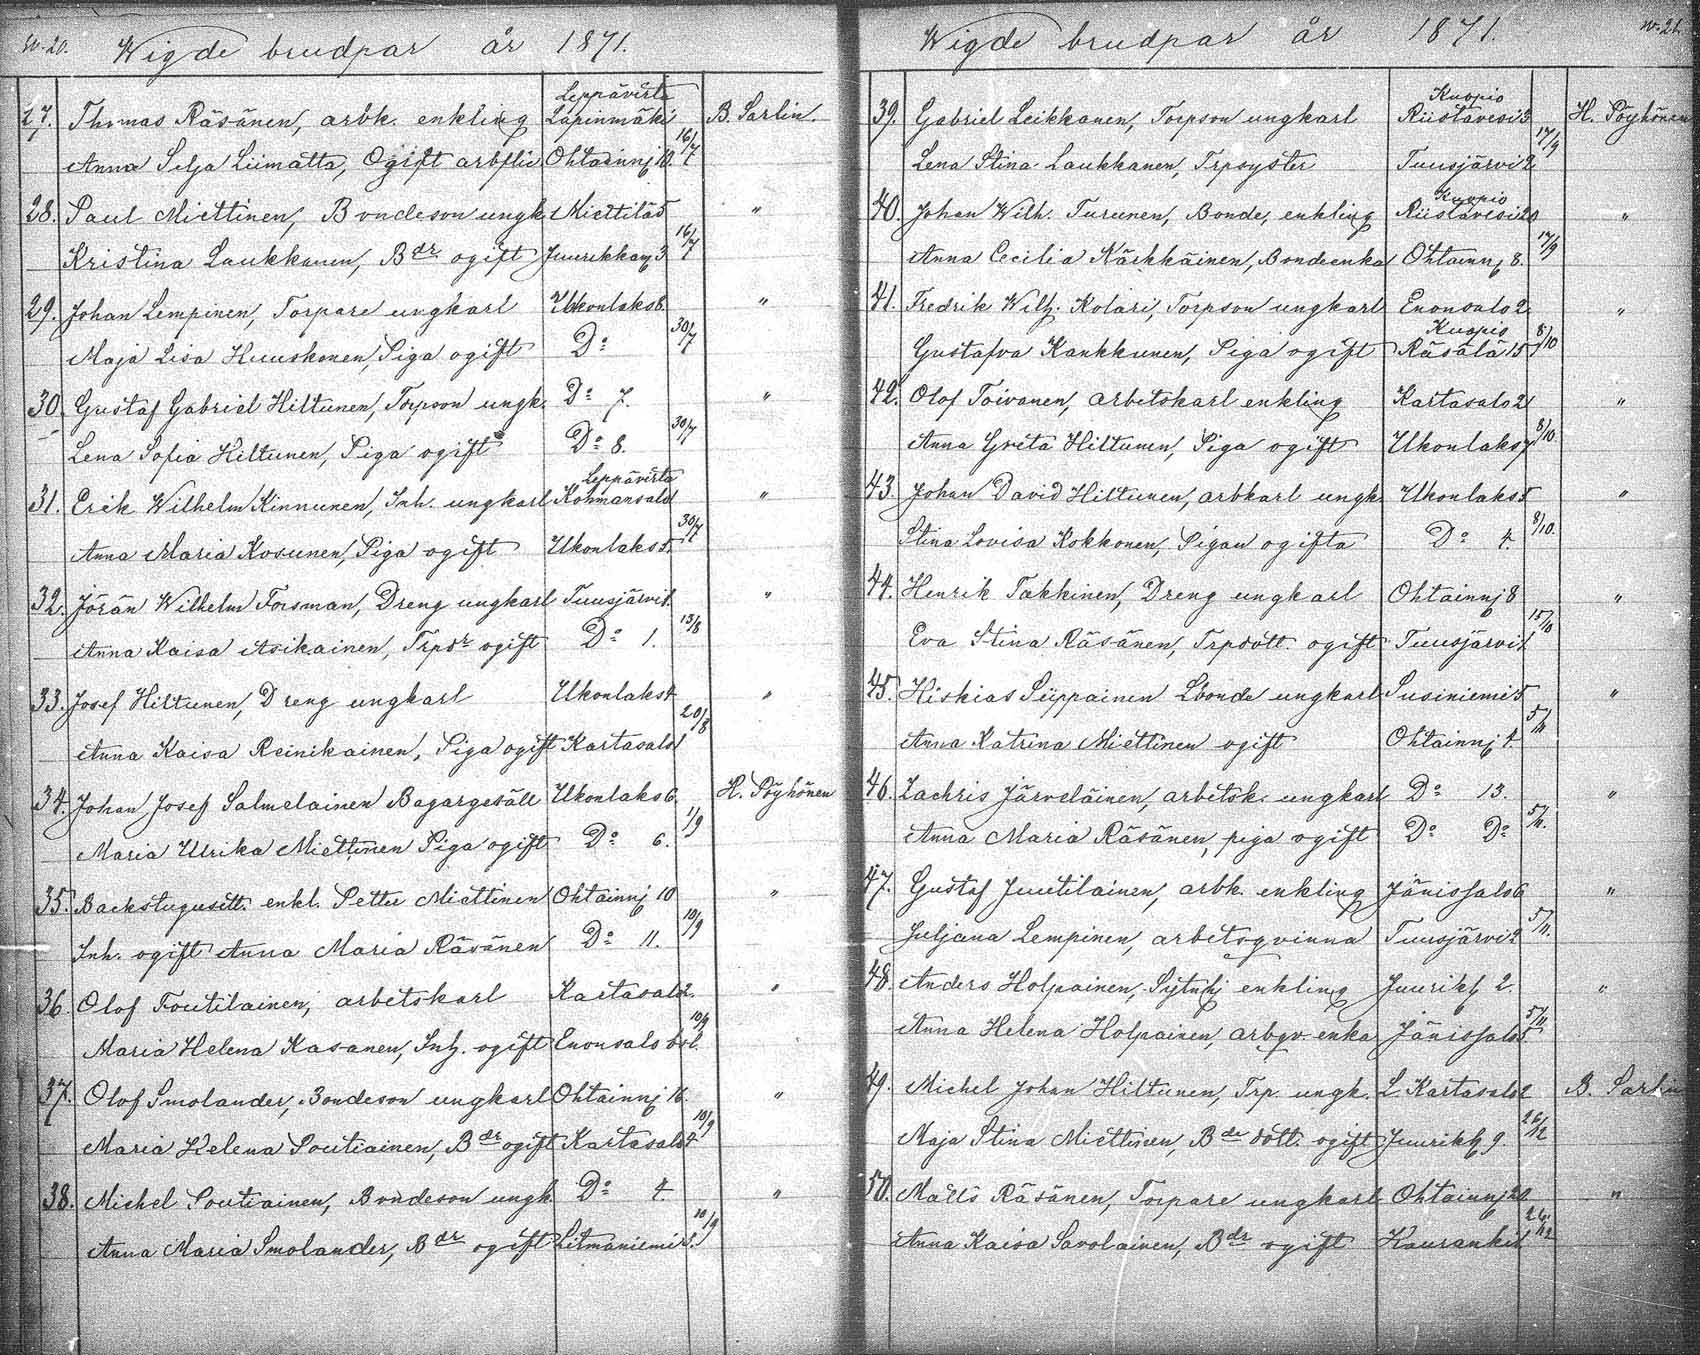 W. 20. Wigde brudpar år 1871.
27. Thomas Räsänen, arbk. enkling Leppävirta Lapinmäki B. Sarlin.
Anna Selja Liimatta, Ogift arbflic Ohtainnj 10. 16/7
28. Paul Miettinen, Bondeson ungk. Miettilä 5 "
Kristina Laukkanen, Bdr. ogift Juurikkamj 3 16/7
29. Johan Lempinen, Torpare ungkarl Ukonlaks 8. "
Maja Lisa Huuskonen, Piga ogift Do 30/7
30. Gustaf Gabriel Hiltunen, Torpson ungk. Do 7. "
Lena Sofia Hiltunen, Piga ogift Do 8. 30/7
31. Erik Wilhelm Kinnunen, Inh. ungkarl Leppävirta "
Anna Maria Kosunen, Piga ogift Ukonlaks 5. 30/7
32. Jöran Wilhelm Forsman, Dreng ungkarl Tuusjärvi 1. "
Anna Kaisa Asikainen, Trpdr ogift Do 1. 13/8
33. Josef Hiltunen, Dreng ungkarl Ukonlaks 4. "
Anna Kaisa Reinikainen, Piga ogift Kartasalo 1 20/8
34. Johan Josef Salmelainen Bagargesäll Ukonlaks 6. H. Pöyhönen
Maria Ulrika Miettinen Piga ogift Do 6. 1/9
35. Backstugusitt. enkl. Petter Miettinen Ohtainnj 10 "
Inh. ogift Anna Maria Räsänen Do 11. 10/9
36. Olof Poutilainen, arbetskarl Kartasalo 2. "
Maria Helena Kasanen, Inh. ogift Enonsalo bol. 10/9
37. Olof Smolander, Bondeson ungkarl Ohtainnj 16. "
Maria Helena Poutiainen, Bdr ogift Kartasalo 4. 10/9
38. Michel Poutiainen, Bondeson ungk. Do 4. "
Anna Maria Smolander, Bdr ogift Litmaniemi 10/9
Wigde brudpar år 1871. W. 21.
39. Gabriel Leikkanen, Torpson ungkarl Kuopio Riistavesi 3. H. Pöyhönen
Lena Stina Laukkanen, Trpsyster Tuusjärvi 2 17/9
40. Johan Wilh. Turunen, Bonde, enkling Kuopio Riistavesi 20 "
Anna Cecilia Näykkäinen, Bondeenka Ohtainnj 8. 17/9
41. Fredrik Wilh. Kolari, Torpson ungkarl Enonsalo 2. "
Gustafva Kankkunen, Piga ogift Kuopio Räsälä 15 8/10
42. Olof Toivanen, arbetskarl enkling Kartasalo 2 "
Anna Greta Hiltunen, Piga ogift Ukonlaks 7 8/10.
43. Johan David Hiltunen, arbkarl ungk. Ukonlaks 5 "
Stina Lovisa Kokkonen, Pigan ogifta Do 4. 8/10.
44. Henrik Takkinen, Dreng ungkarl Ohtainnj 8 "
Eva Stina Räsänen, Trpdött. ogift Tuusjärvi 1. 15/10
45. Hiskias Piippainen Lbonde ungkarl Susiniemi 5 "
Anna Katrina Miettinen ogift Ohtainnj 4. 5/11
46. Zachris Järveläinen, arbetsk. ungkarl Do 13. "
Anna Maria Räsänen, piga ogift Do Do 5/11.
47. Gustaf Juutilainen, arbk. enkling Jänissalo 6 "
Juljana Lempinen, arbetsqvinna Tuusjärvi 2 5/11.
48. Anders Holpainen, enkling Juurikk 2. "
Anna Helena Holpainen, arbqv. enka Jänissalo 5. 5/11
49. Michel Johan Hiltunen, Trp. ungk. L. Kartasalo 2 B. Sarlin
Maja Stina Miettinen, Bde dött. ogift Juurikk 9. 26/12
50. Matts Räsänen, Torpare ungkarl Ohtainnj 20 "
Anna Kaisa Savolainen, Bdr ogift 26/12